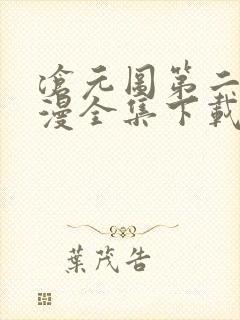 滄元圖第二
漫全集下載
葉茂告